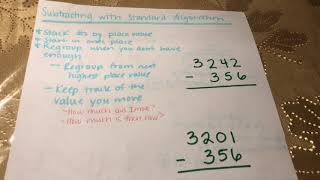 Subtracting with Standard Algorithm
* Stack #s by place value
* Start in ones place
* Regroup when you don't have
enough
-- Regroup from next
highest place value
-- Keep track of the
value you move
- How much did I move?
- How much is there now?
3242
- 356
3201
- 356